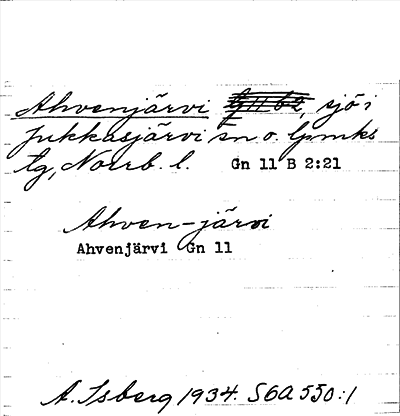 Ahvenjärvi, sjö i
Jukkasjärvi sn o. lpmks
tg, Norrb. l. Gn 11 B 2:21
Ahven-järvi
Ahvenjärvi Gn 11
A. Isberg 1934. SOA 550:1